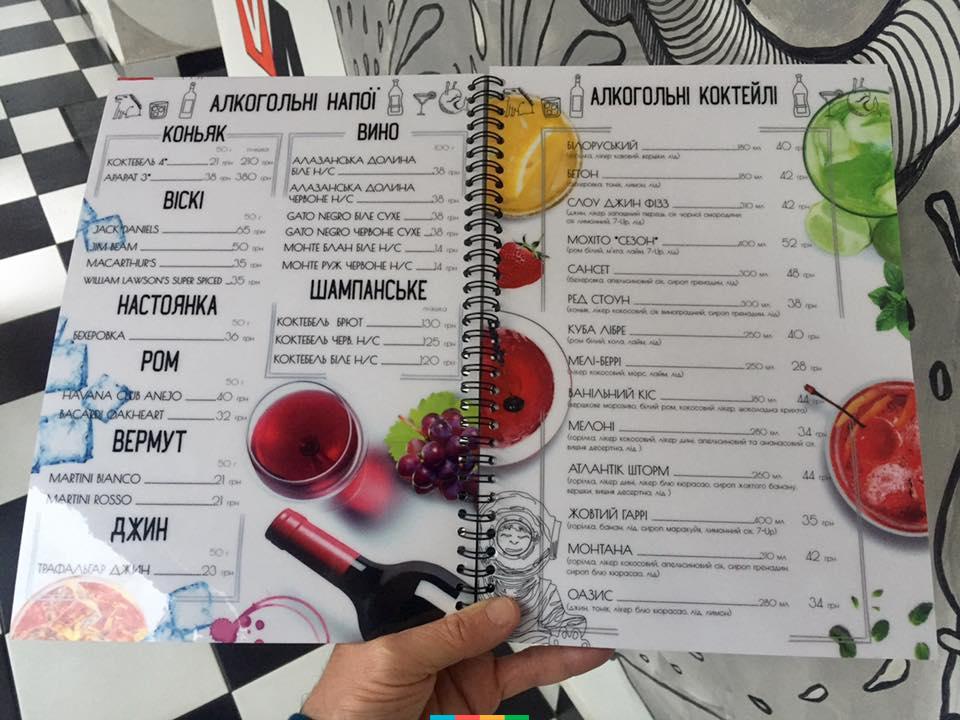 АЛКОГОЛЬНІ НАПОЇ
КОНЬЯК
50 г пляшка
КОКТЕБЕЛЬ 4* 21 грн 210 грн
АРАРАТ 3* 38 грн 380 грн
ВІСКІ
50 г
JACK DANIELS 65 грн
JIM BEAM 50 грн
MACARTHUR'S 35 грн
WILLIAM LAWSON'S SUPER SPICED 35 грн
НАСТОЯНКА
50 г
БЕХЕРОВКА 36 грн
РОМ
50 г
HAVANA CLUB ANEJO 40 грн
BACARDI OAKHEART 32 грн
ВЕРМУТ
50 г
MARTINI BIANCO 21 грн
MARTINI ROSSO 21 грн
ДЖИН
50 г
ТРАФАЛЬГАР ДЖИН 23 грн
ВИНО
100 г
АЛАЗАНСЬКА ДОЛИНА
БІЛЕ Н/С 38 грн
АЛАЗАНСЬКА ДОЛИНА
ЧЕРВОНЕ Н/С 38 грн
GATO NEGRO БІЛЕ СУХЕ 38 грн
GATO NEGRO ЧЕРВОНЕ СУХЕ 38 грн
МОНТЕ БЛАН БІЛЕ Н/С 14 грн
МОНТЕ РУЖ ЧЕРВОНЕ Н/С 14 грн
ШАМПАНСЬКЕ
пляшка
КОКТЕБЕЛЬ БРЮТ 130 грн
КОКТЕБЕЛЬ ЧЕРВ. Н/С 125 грн
КОКТЕБЕЛЬ БІЛЕ Н/С 120 грн
АЛКОГОЛЬНІ КОКТЕЙЛІ
БІЛОРУСЬКИЙ 180 мл 40 грн
(горілка, лікер кавовий, вершки, лід)
БЕТОН 180 мл 42 грн
(бехеровка, тонік, лимон, лід)
СЛОУ ДЖИН ФІЗЗ 310 мл 42 грн
(джин, лікер запашний перець, сік чорної смородини,
сік лимонний, 7-Up, лід)
МОХІТО "СЕЗОН" 400 мл 52 грн
(ром білий, м'ята, лайм, 7-Up, лід)
САНСЕТ 300 мл 48 грн
(бехеровка, апельсиновий сік, сироп гренадин, лід)
РЕД СТОУН 300 мл 38 грн
(коньяк, лікер кокосовий, сік виноградний, сироп гренадин, лід)
КУБА ЛІБРЕ 250 мл 40 грн
(ром білий, кола, лайм, лід)
МЕЛІ-БЕРРІ 250 мл 28 грн
(лікер кокосовий, морс, лайм, лід)
ВАНІЛЬНИЙ КІС 180 мл 44 грн
(вершкове морозиво, білий ром, кокосовий лікер, шоколадна крихта)
МЕЛОНІ 280 мл 34 грн
(горілка, лікер кокосовий, лікер дині, апельсиновий та ананасовий сік,
вишня десертна, лід)
АТЛАНТІК ШТОРМ 260 мл 44 грн
(горілка, лікер дині, лікер блю кюрасао, сироп жовтого банану,
вершки, вишня десертна, лід)
ЖОВТИЙ ГАРРІ 400 мл 35 грн
(горілка, банан, лід, сироп маракуйя, лимонний сік, 7-Up)
МОНТАНА 310 мл 42 грн
(горілка, лікер кокосовий, апельсиновий сік, сироп гренадин,
сироп блю кюрасао, лід)
ОАЗИС 280 мл 34 грн
(джин, тонік, лікер блю кюрасао, лід, лимон)